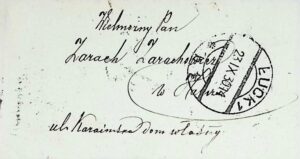 Wielmożny Pan
Zarach Zarachowicz
w
ul. Karaimska dom własny
23 IX 30 14
ŁUCK 1